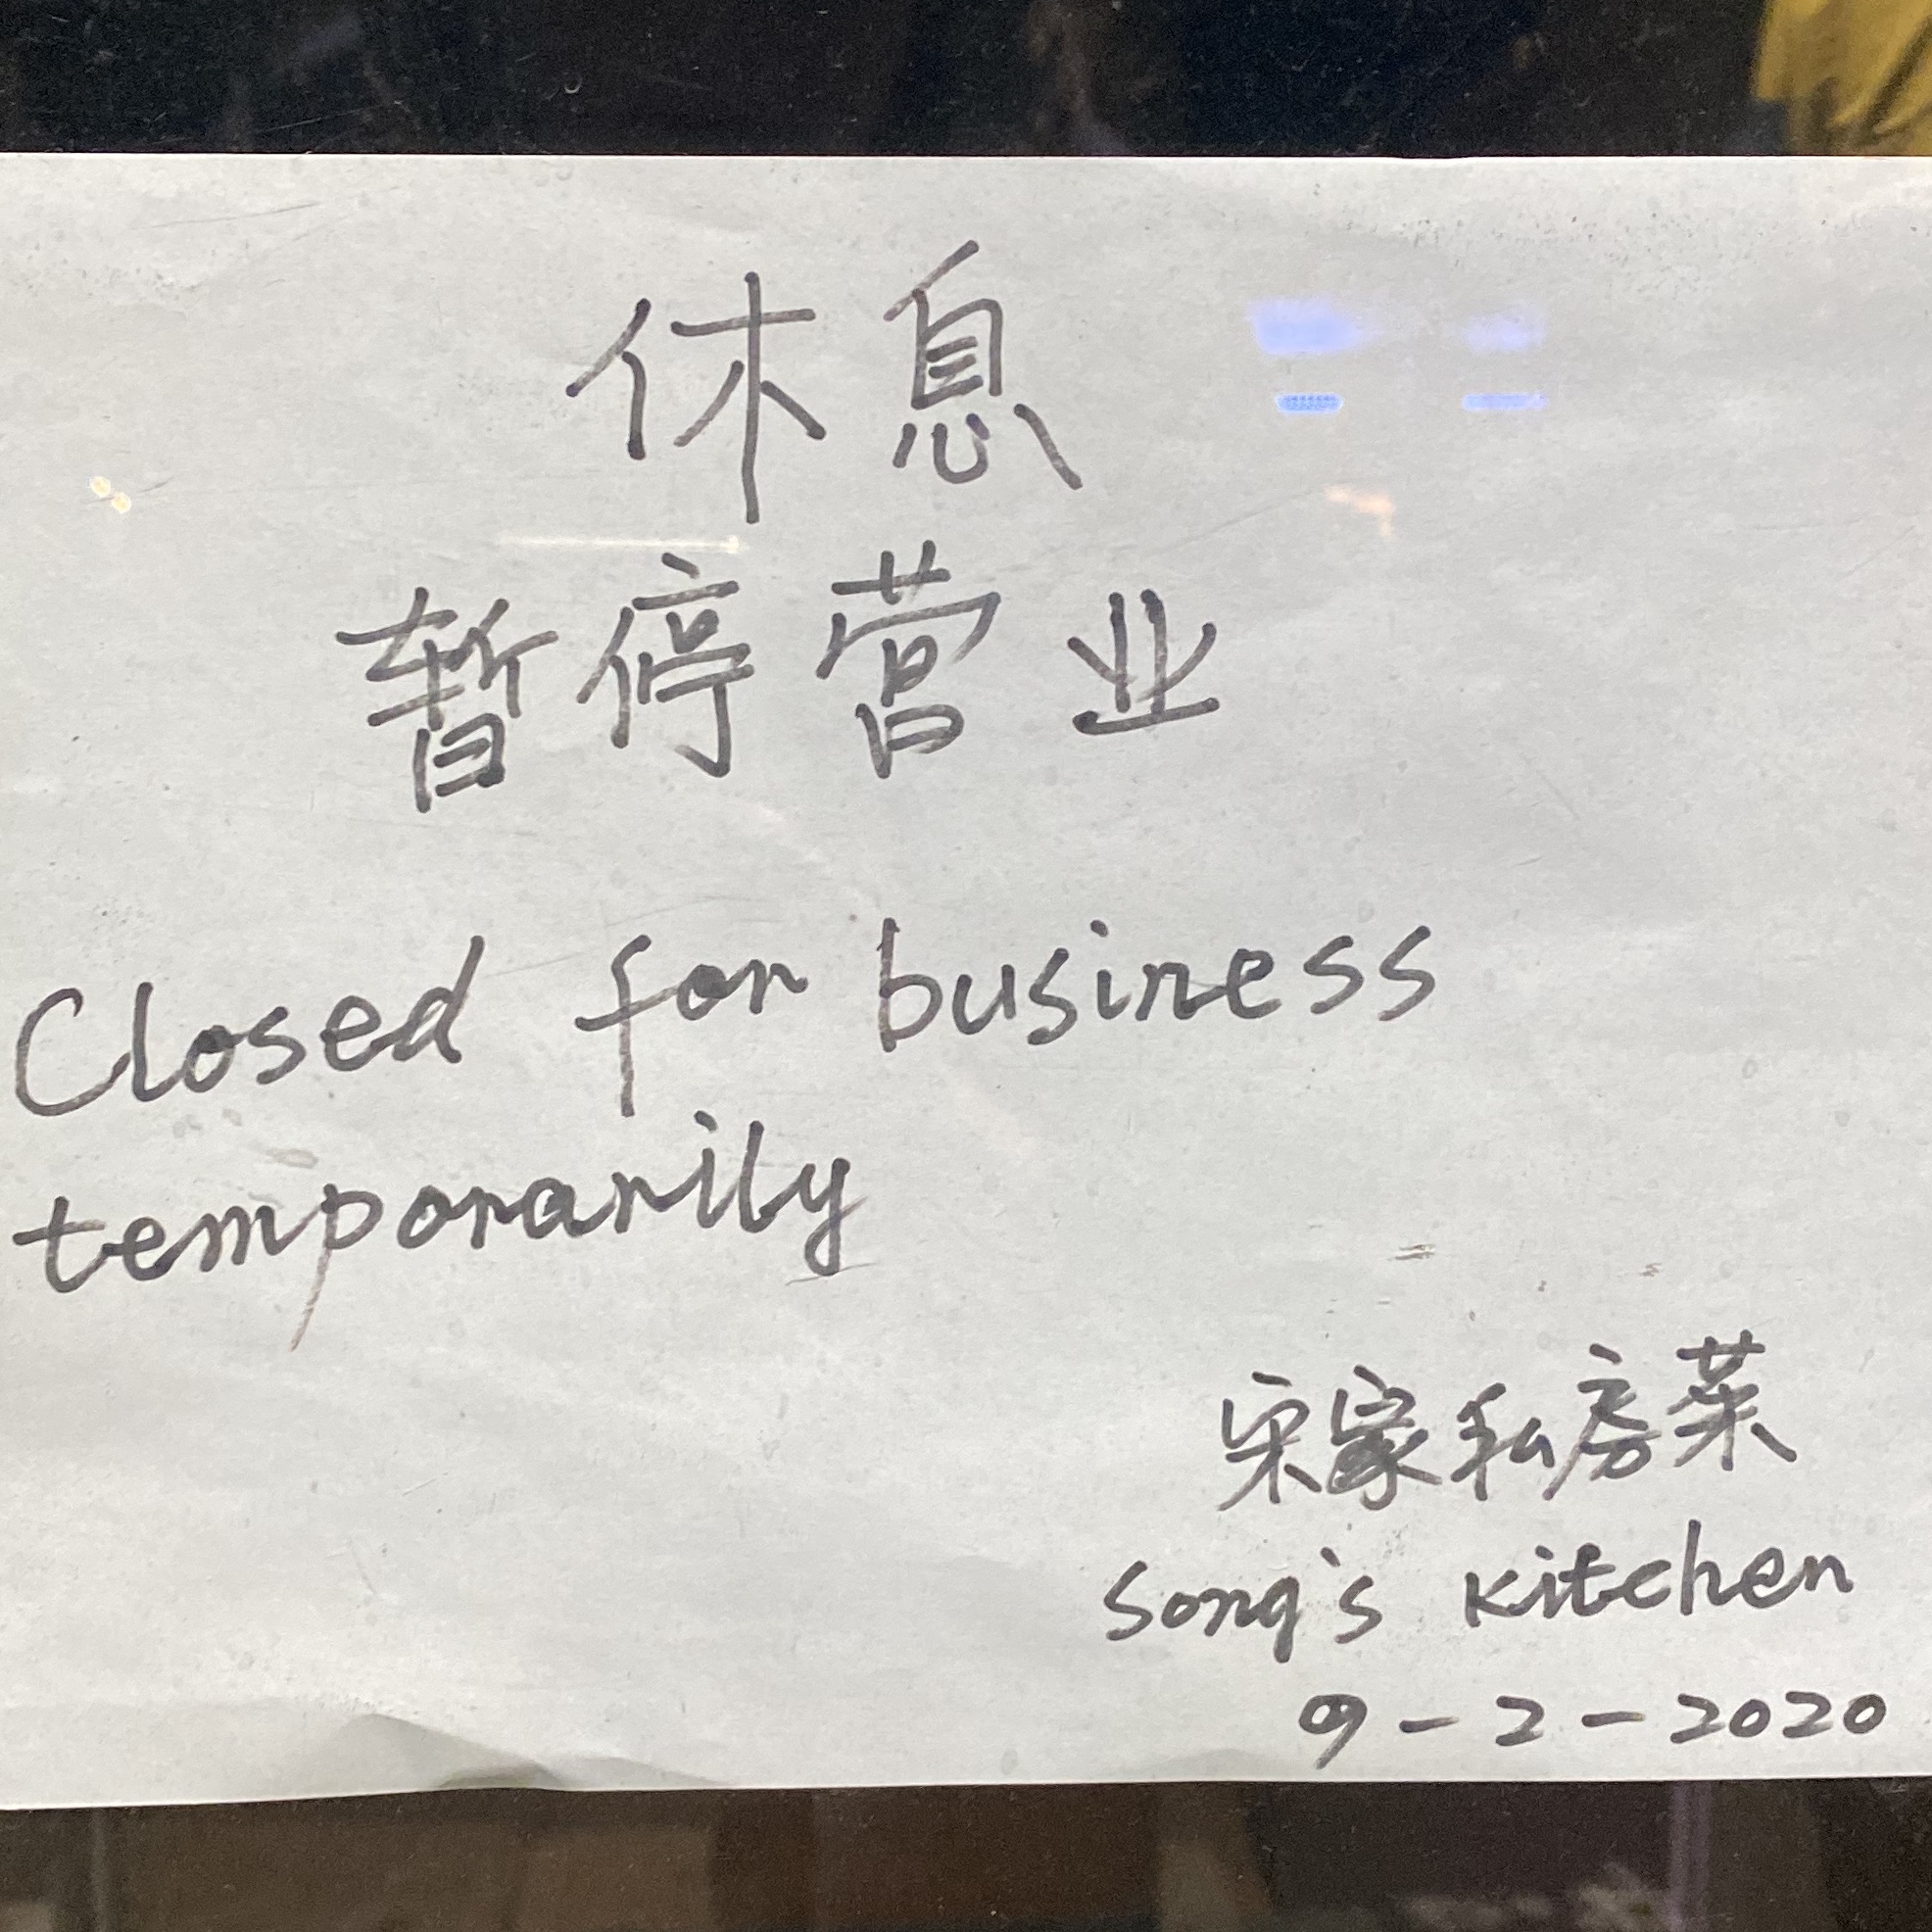 休息
暂停营业
Closed for business
temporarily
宋家私房菜
Song's kitchen
9-2-2020